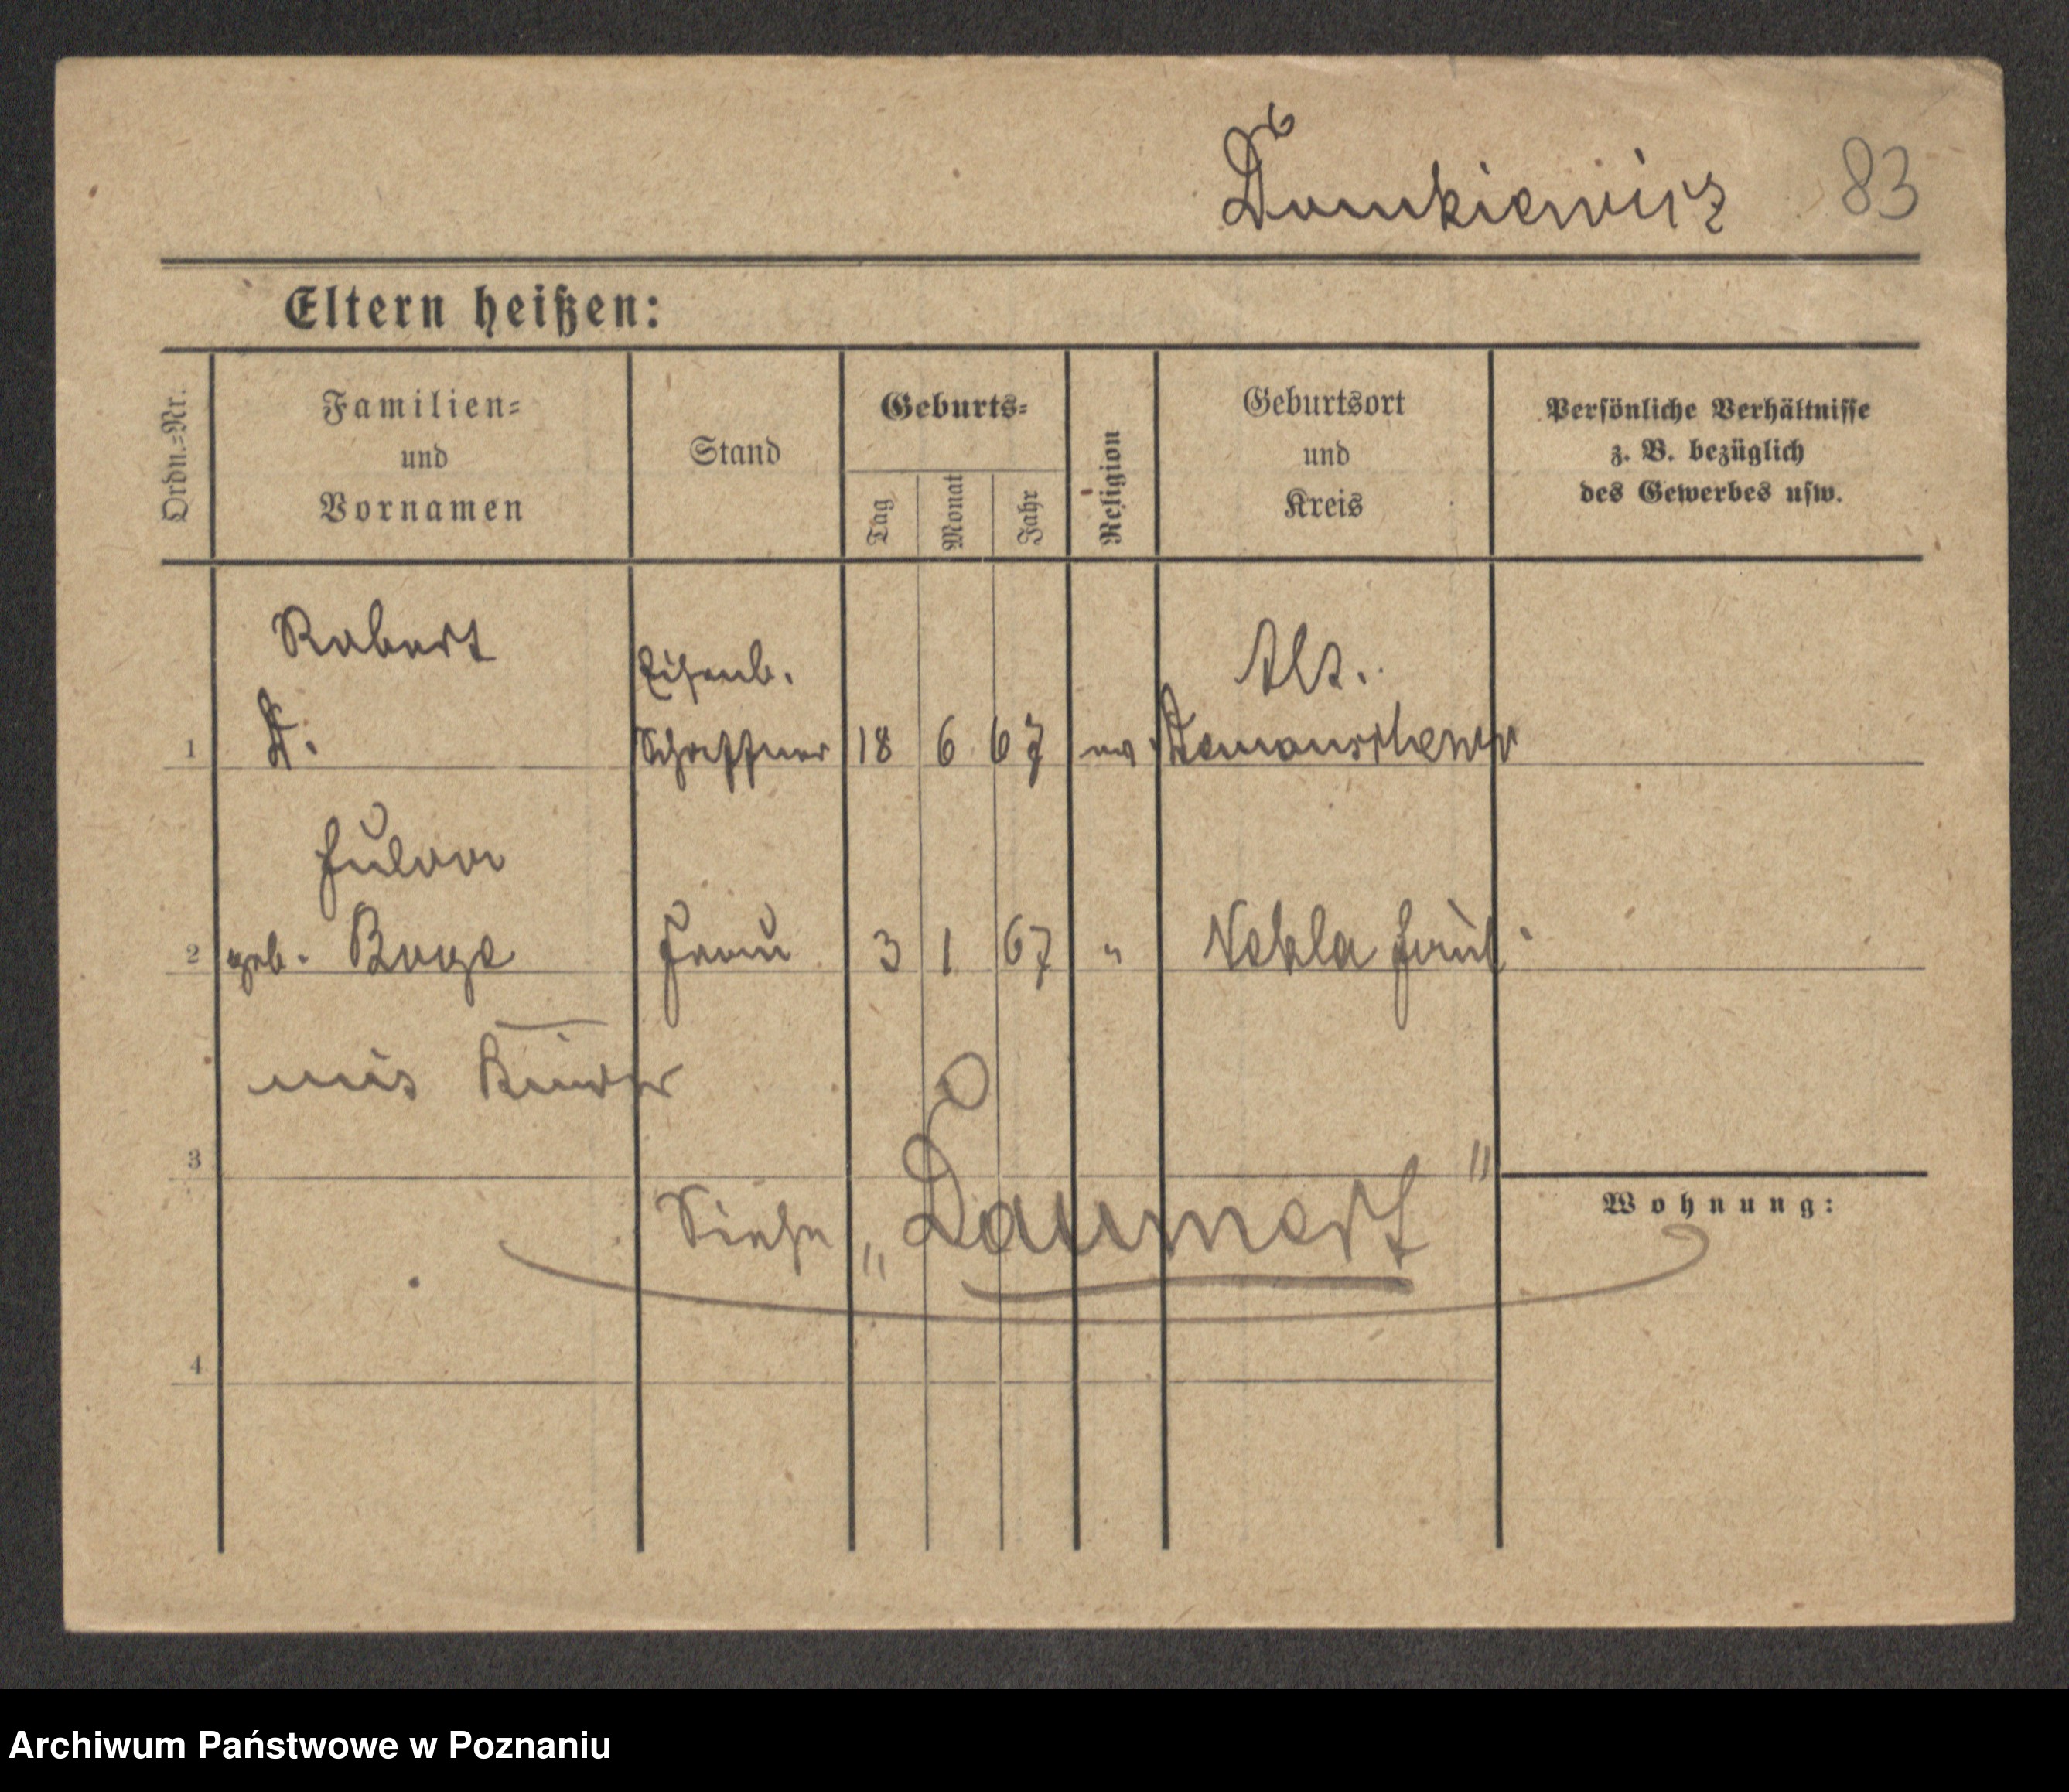 Domkiewicz 83
Eltern heißen:
Ordn.=Nr.
Familien=
und
Vornamen
Stand
Geburts=
Tag
Monat
Jahr
Religion
Geburtsort
und
Kreis
Persönliche Verhältnisse
z. B. bezüglich
des Gewerbes usw.
Robert
D.
Eisenb.
Schaffner
1 18 6 67 ev
Alt.
2 geb. Frau 3 1 67 " Nekla
3
Siehe „Daumert"
Wohnung:
4
Archiwum Państwowe w Poznaniu